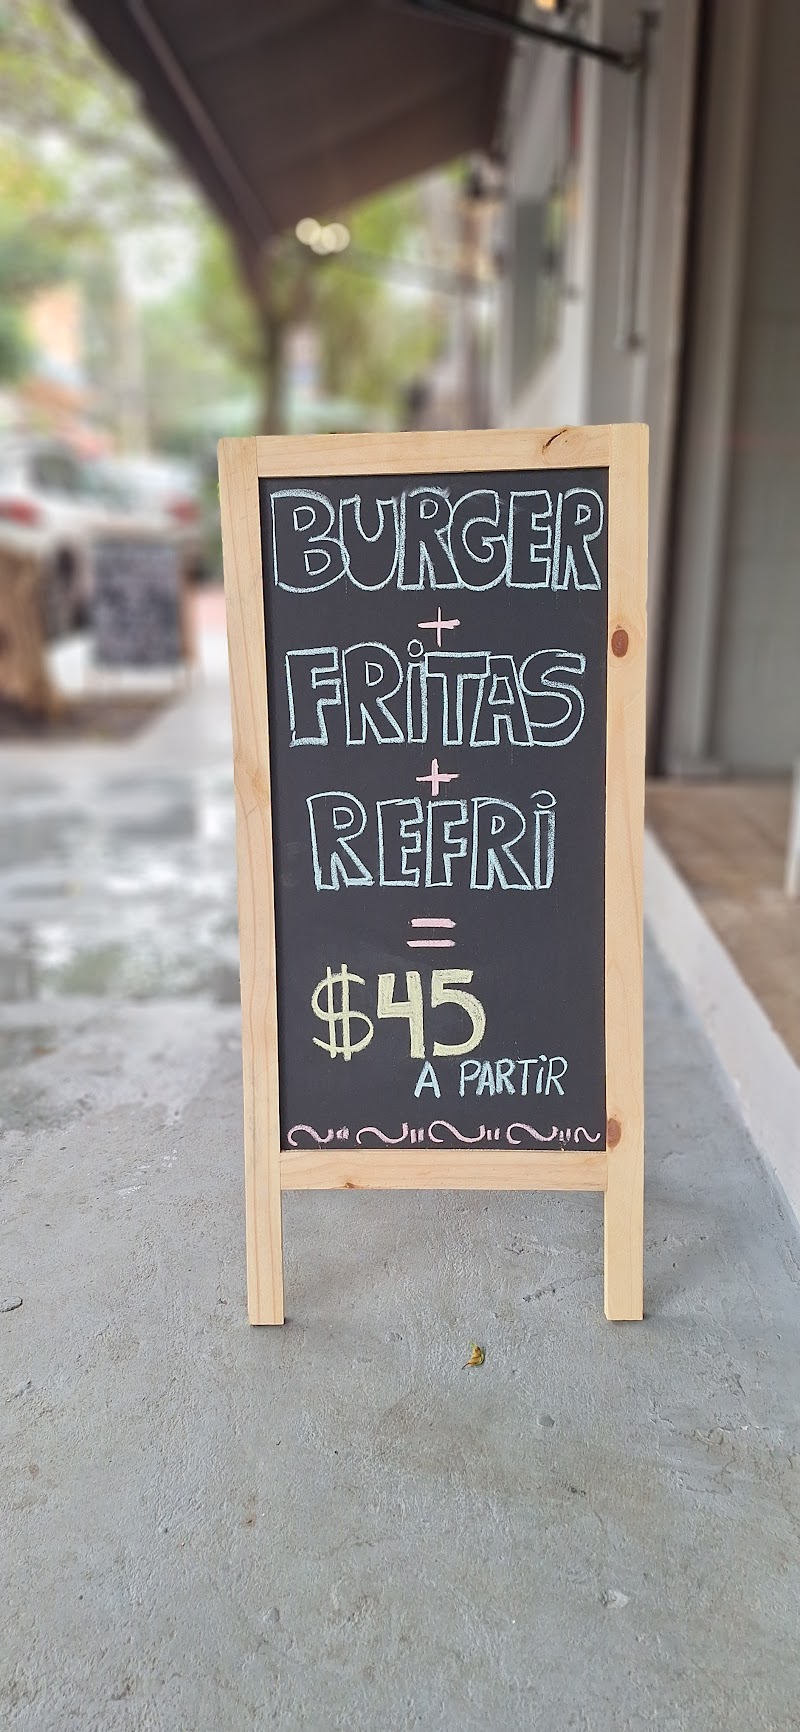 BURGER
+
FRiTAS
+
REFRi
=
$45
A PARTiR